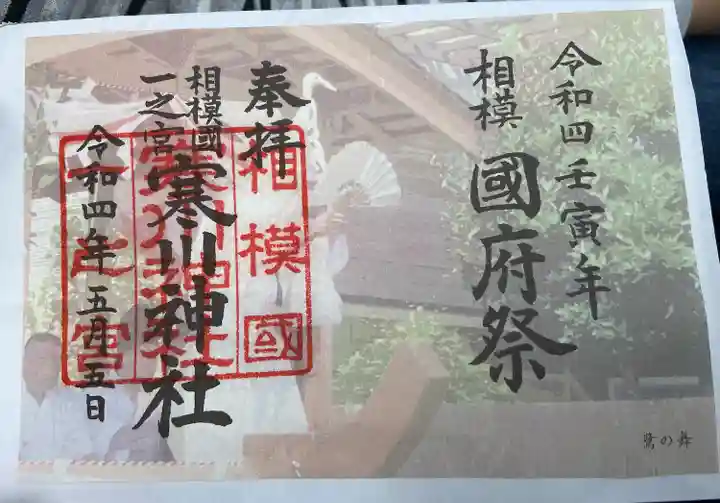 令和四壬寅年
相模 國府祭
奉拝
相模國
一之宮
寒川神社
令和四年五月五日
相模國
一之宮
寒川神社
鷺の舞